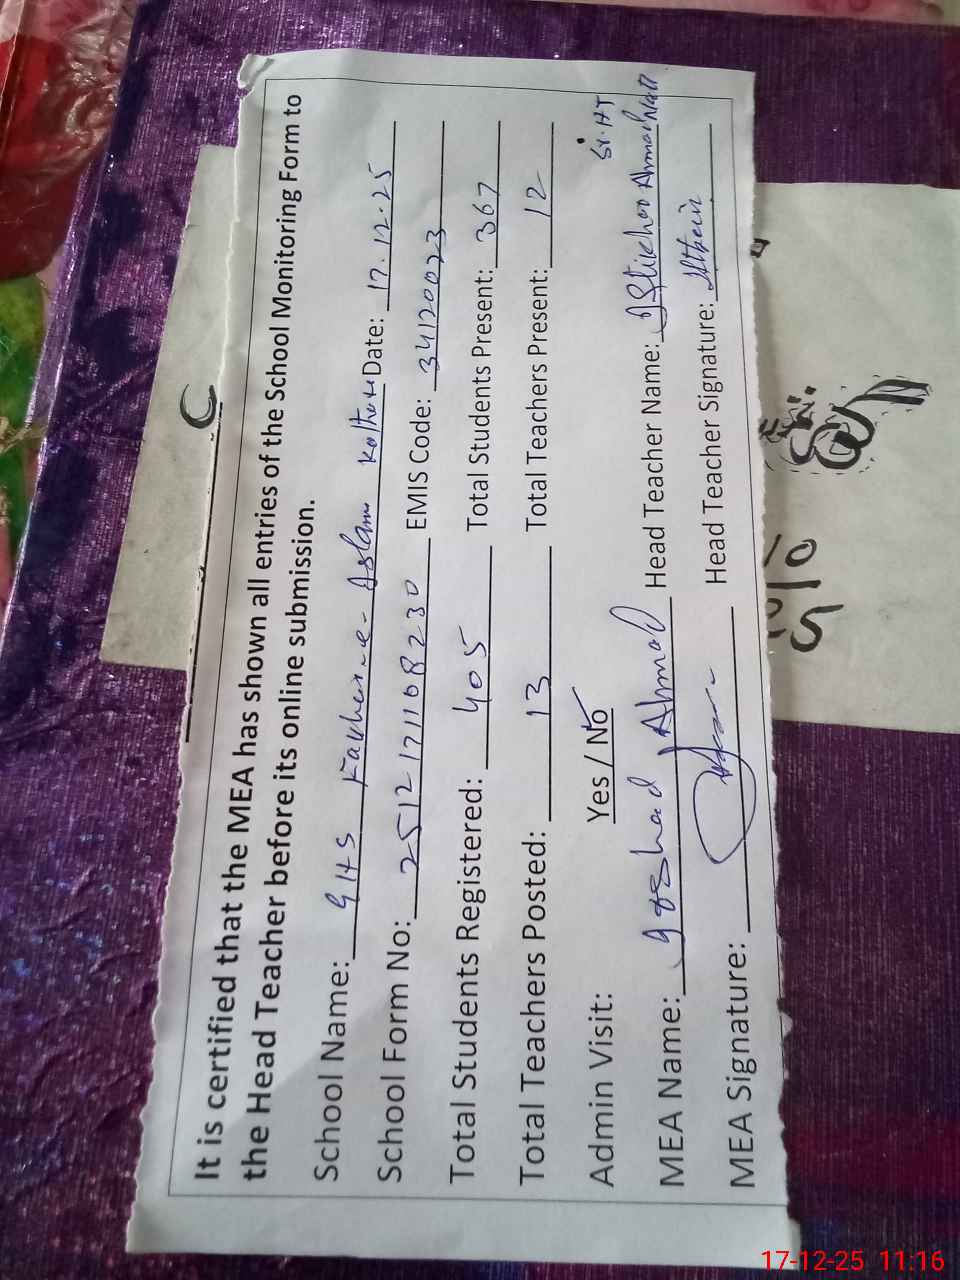 It is certified that the MEA has shown all entries of the School Monitoring Form to
the Head Teacher before its online submission.
School Name: GHS Aslam Date: 17.12.25
School Form No: 2512171168230 EMIS Code: 34120023
Total Students Registered: 405 Total Students Present: 367
Total Teachers Posted: 13 Total Teachers Present: 12
Admin Visit: Yes / No Sr. HT
MEA Name: Arshad Ahmad Head Teacher Name: Iftikhar Ahmad
MEA Signature: Head Teacher Signature:
C
10
5
17-12-25 11:16